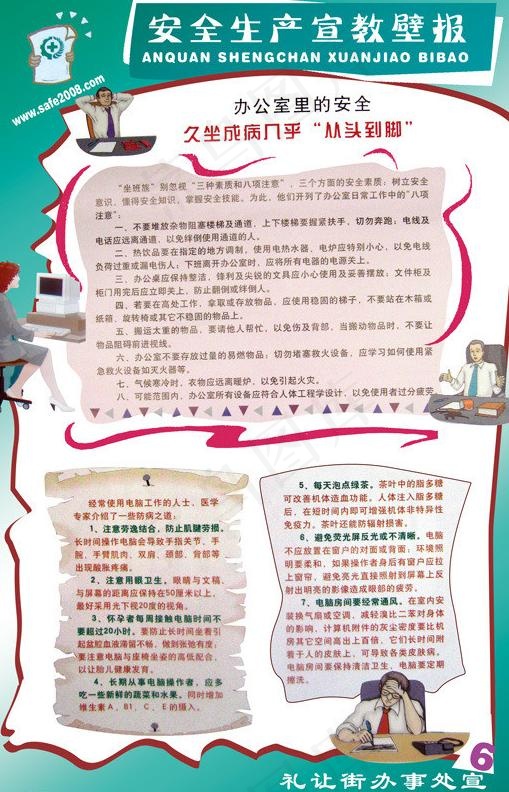 安全生产宣教壁报
ANQUAN SHENGCHAN XUANJIAO BIBAO
www.safe2008.com
办公室里的安全
久坐成病几乎“从头到脚”
“坐班族”别忽视“三种素质和八项注意”，三个方面的安全素质：树立安全
意识，懂得安全知识，掌握安全技能。为此，他们开列了办公室日常工作中的“八项
注意”：
一、不要堆放杂物阻塞楼梯及通道，上下楼梯要握紧扶手，切勿奔跑；电线及
电话应远离通道，以免绊倒使用通道的人。
二、热饮品要在指定的地方调制，使用电热水器、电炉应特别小心，以免电线
负荷过重或漏电伤人；下班离开办公室时，应将所有电器的电源关上。
三、办公桌应保持整洁，锋利及尖锐的文具应小心使用及妥善摆放；文件柜及
柜门用完后应立即关上，防止翻倒或绊倒人。
四、若要在高处工作，拿取或存放物品，应使用稳固的梯子，不要站在木箱或
纸箱、旋转椅或其它不稳固的物品上。
五、搬运太重的物品，要请他人帮忙，以免伤及背部，当搬动物品时，不要让
物品阻碍前进视线。
六、办公室不要存放过量的易燃物品；切勿堵塞救火设备，应学习如何使用紧
急救火设备如灭火器等。
七、气候寒冷时，衣物应远离暖炉，以免引起火灾。
八、可能范围内，办公室所有设备应符合人体工程学设计，以免使用者过分疲劳
经常使用电脑工作的人士，医学
专家介绍了一些防病之道：
1、注意劳逸结合，防止肌腱劳损。
长时间操作电脑会导致手指关节、手
腕、手臂肌肉、双肩、颈部、背部等
出现酸胀疼痛。
2、注意用眼卫生。眼睛与文稿、
与屏幕的距离应保持在50厘米以上，
最好采用光下视20度的视角。
3、怀孕者每周接触电脑时间不
要超过20小时。要防止长时间坐着引
起盆腔血液滞留不畅，做到张弛有度；
要注意电脑与座椅坐姿的高低配合，
以让胎儿健康发育。
4、长期从事电脑操作者，应多
吃一些新鲜的蔬菜和水果。同时增加
维生素A、B1、C、E的摄入。
5、每天泡点绿茶。茶叶中的脂多糖
可改善机体造血功能，人体注入脂多糖
后，在短时间内即可增强机体非特异性
免疫力。茶叶还能防辐射损害。
6、避免荧光屏反光或不清晰。电脑
不应放置在窗户的对面或背面；环境照
明要柔和，如果操作者身后有窗户应拉
上窗帘，避免亮光直接照射到屏幕上反
射出明亮的影像造成眼部的疲劳。
7、电脑房间要经常通风。在室内安
装换气扇或空调，减轻溴比二苯对身体
的影响，计算机附件的灰尘密度要比机
房其它空间高出上百倍，它们长时间附
着于人的皮肤上，可导致各类皮肤病。
电脑房间要保持清洁卫生，电脑要定期
擦洗。
6
礼让街办事处宣